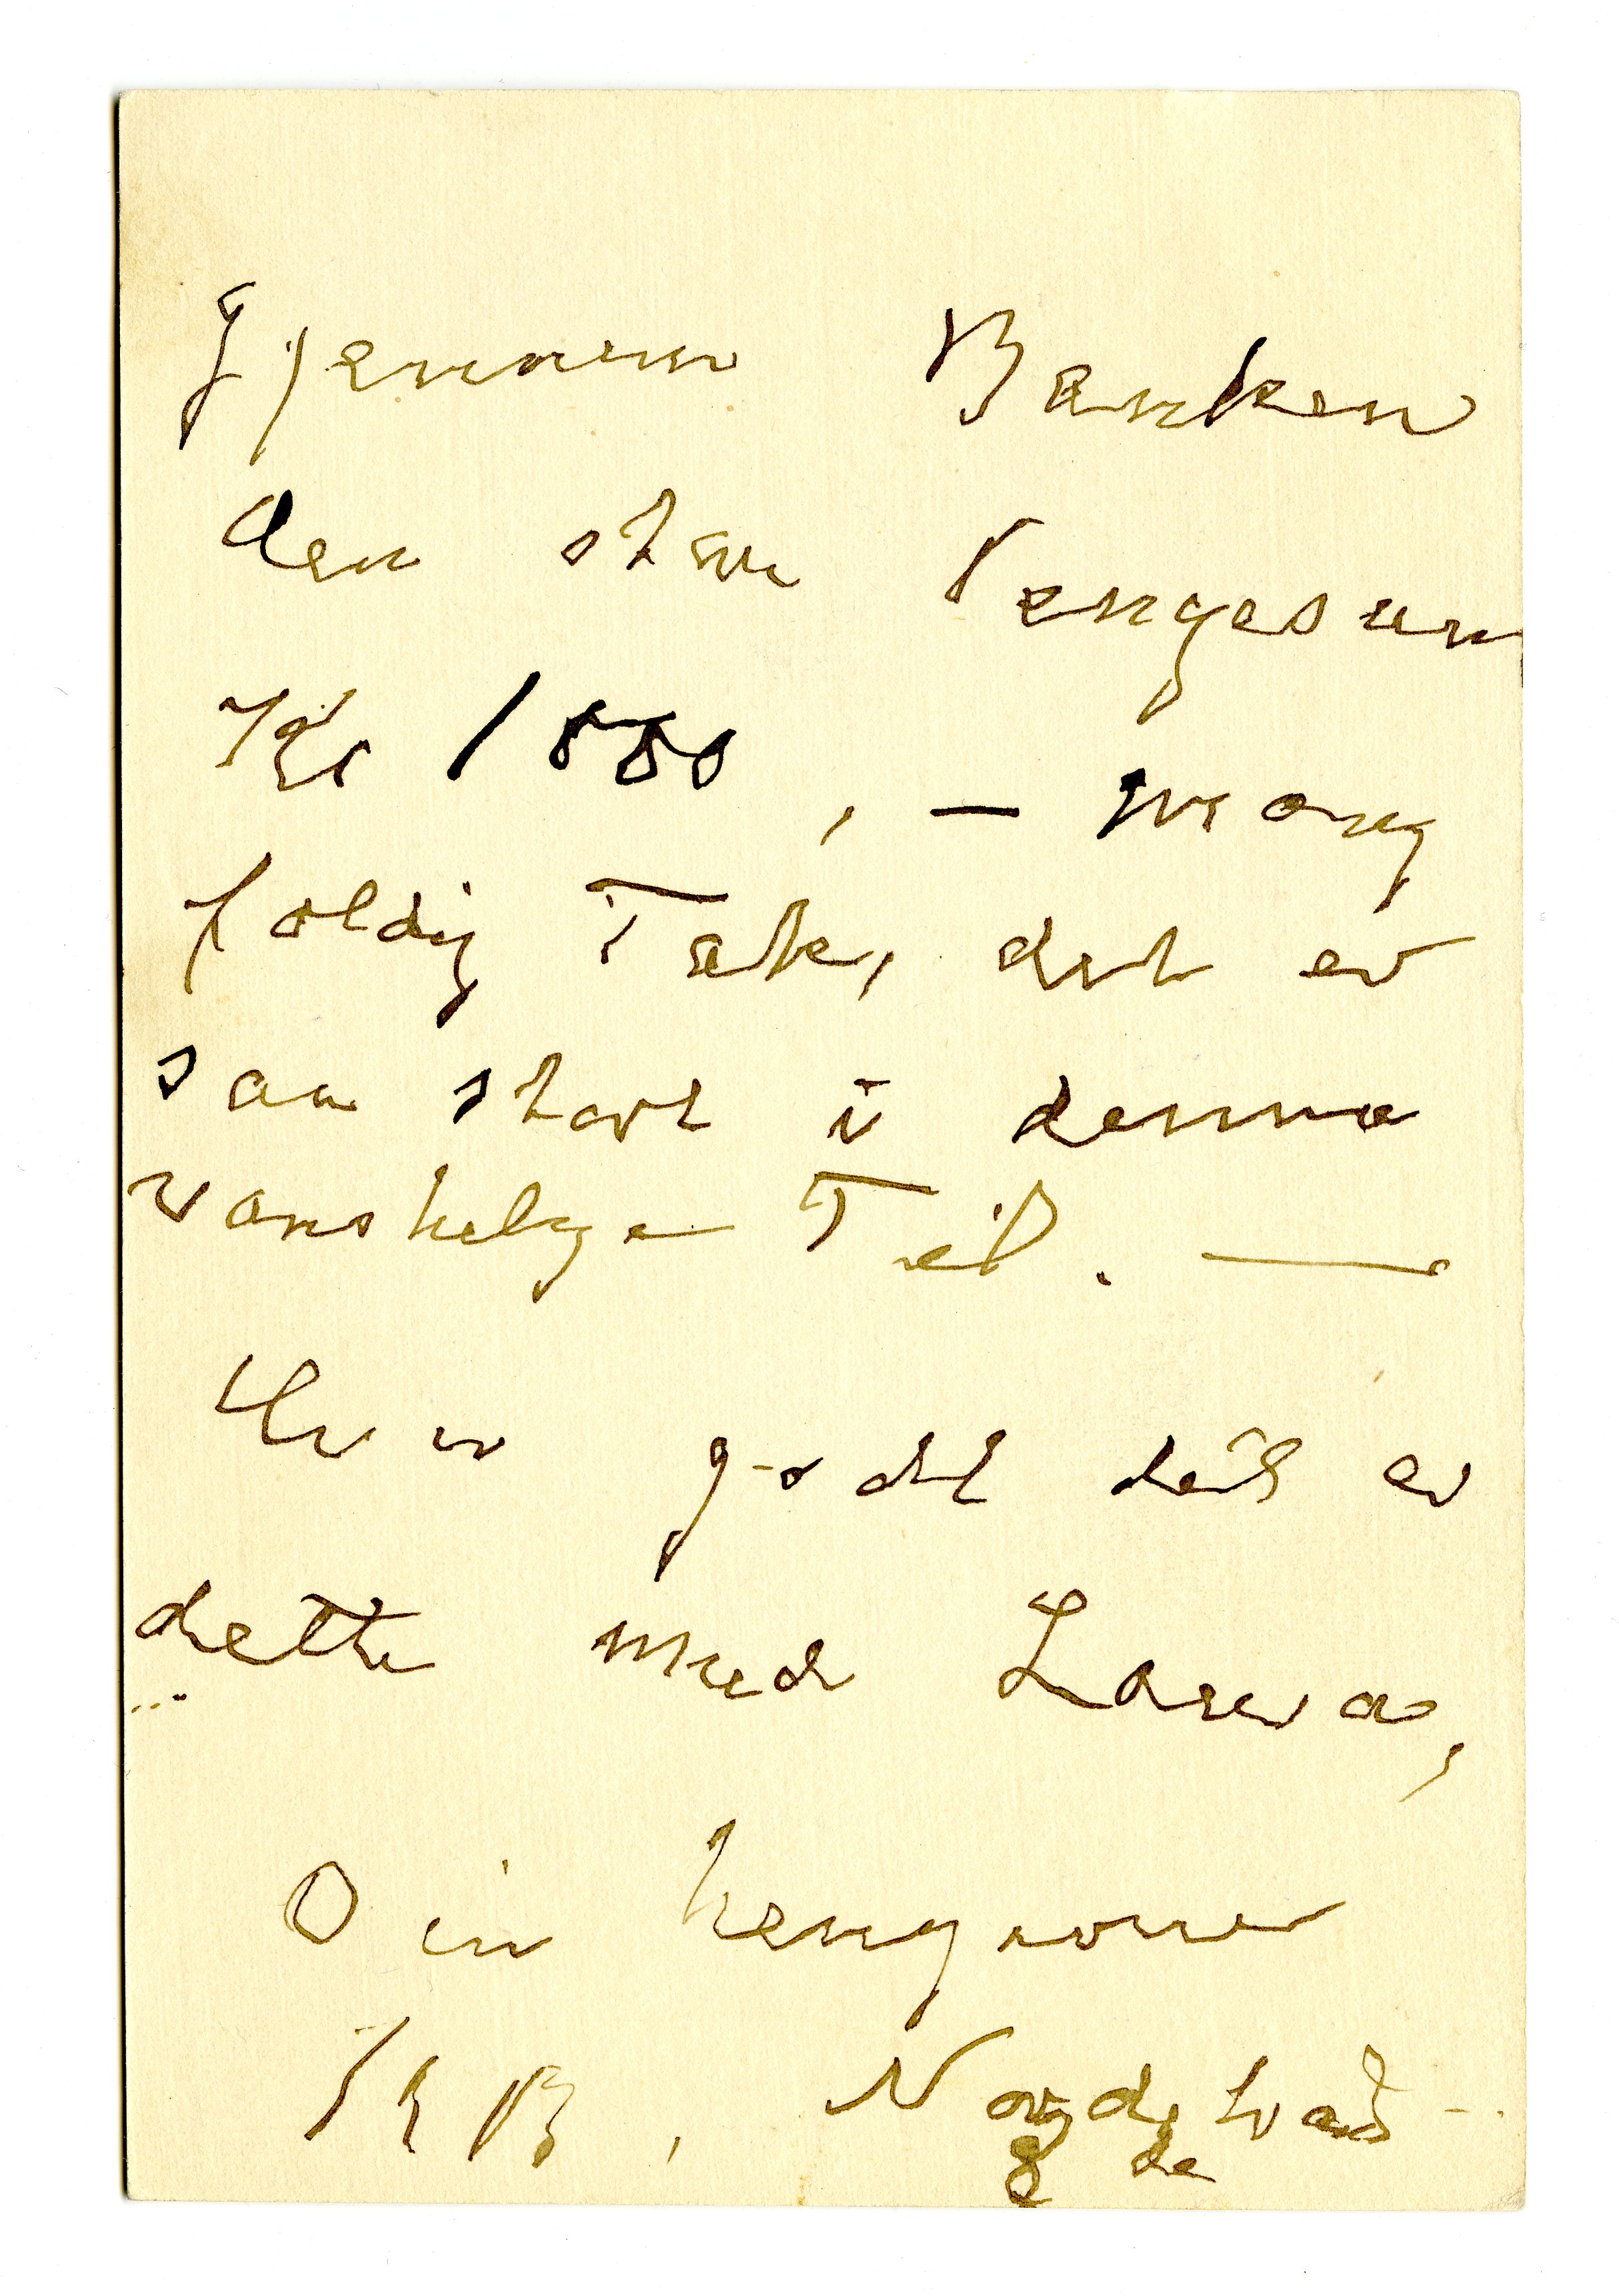 Gjennem Banken
den store Pengesum
Kr 1000, — mang
foldig Tak, det er
saa stort i denne
vanskelige Tid. —
Hvor godt det er
dette med Larva,
Din hengivne